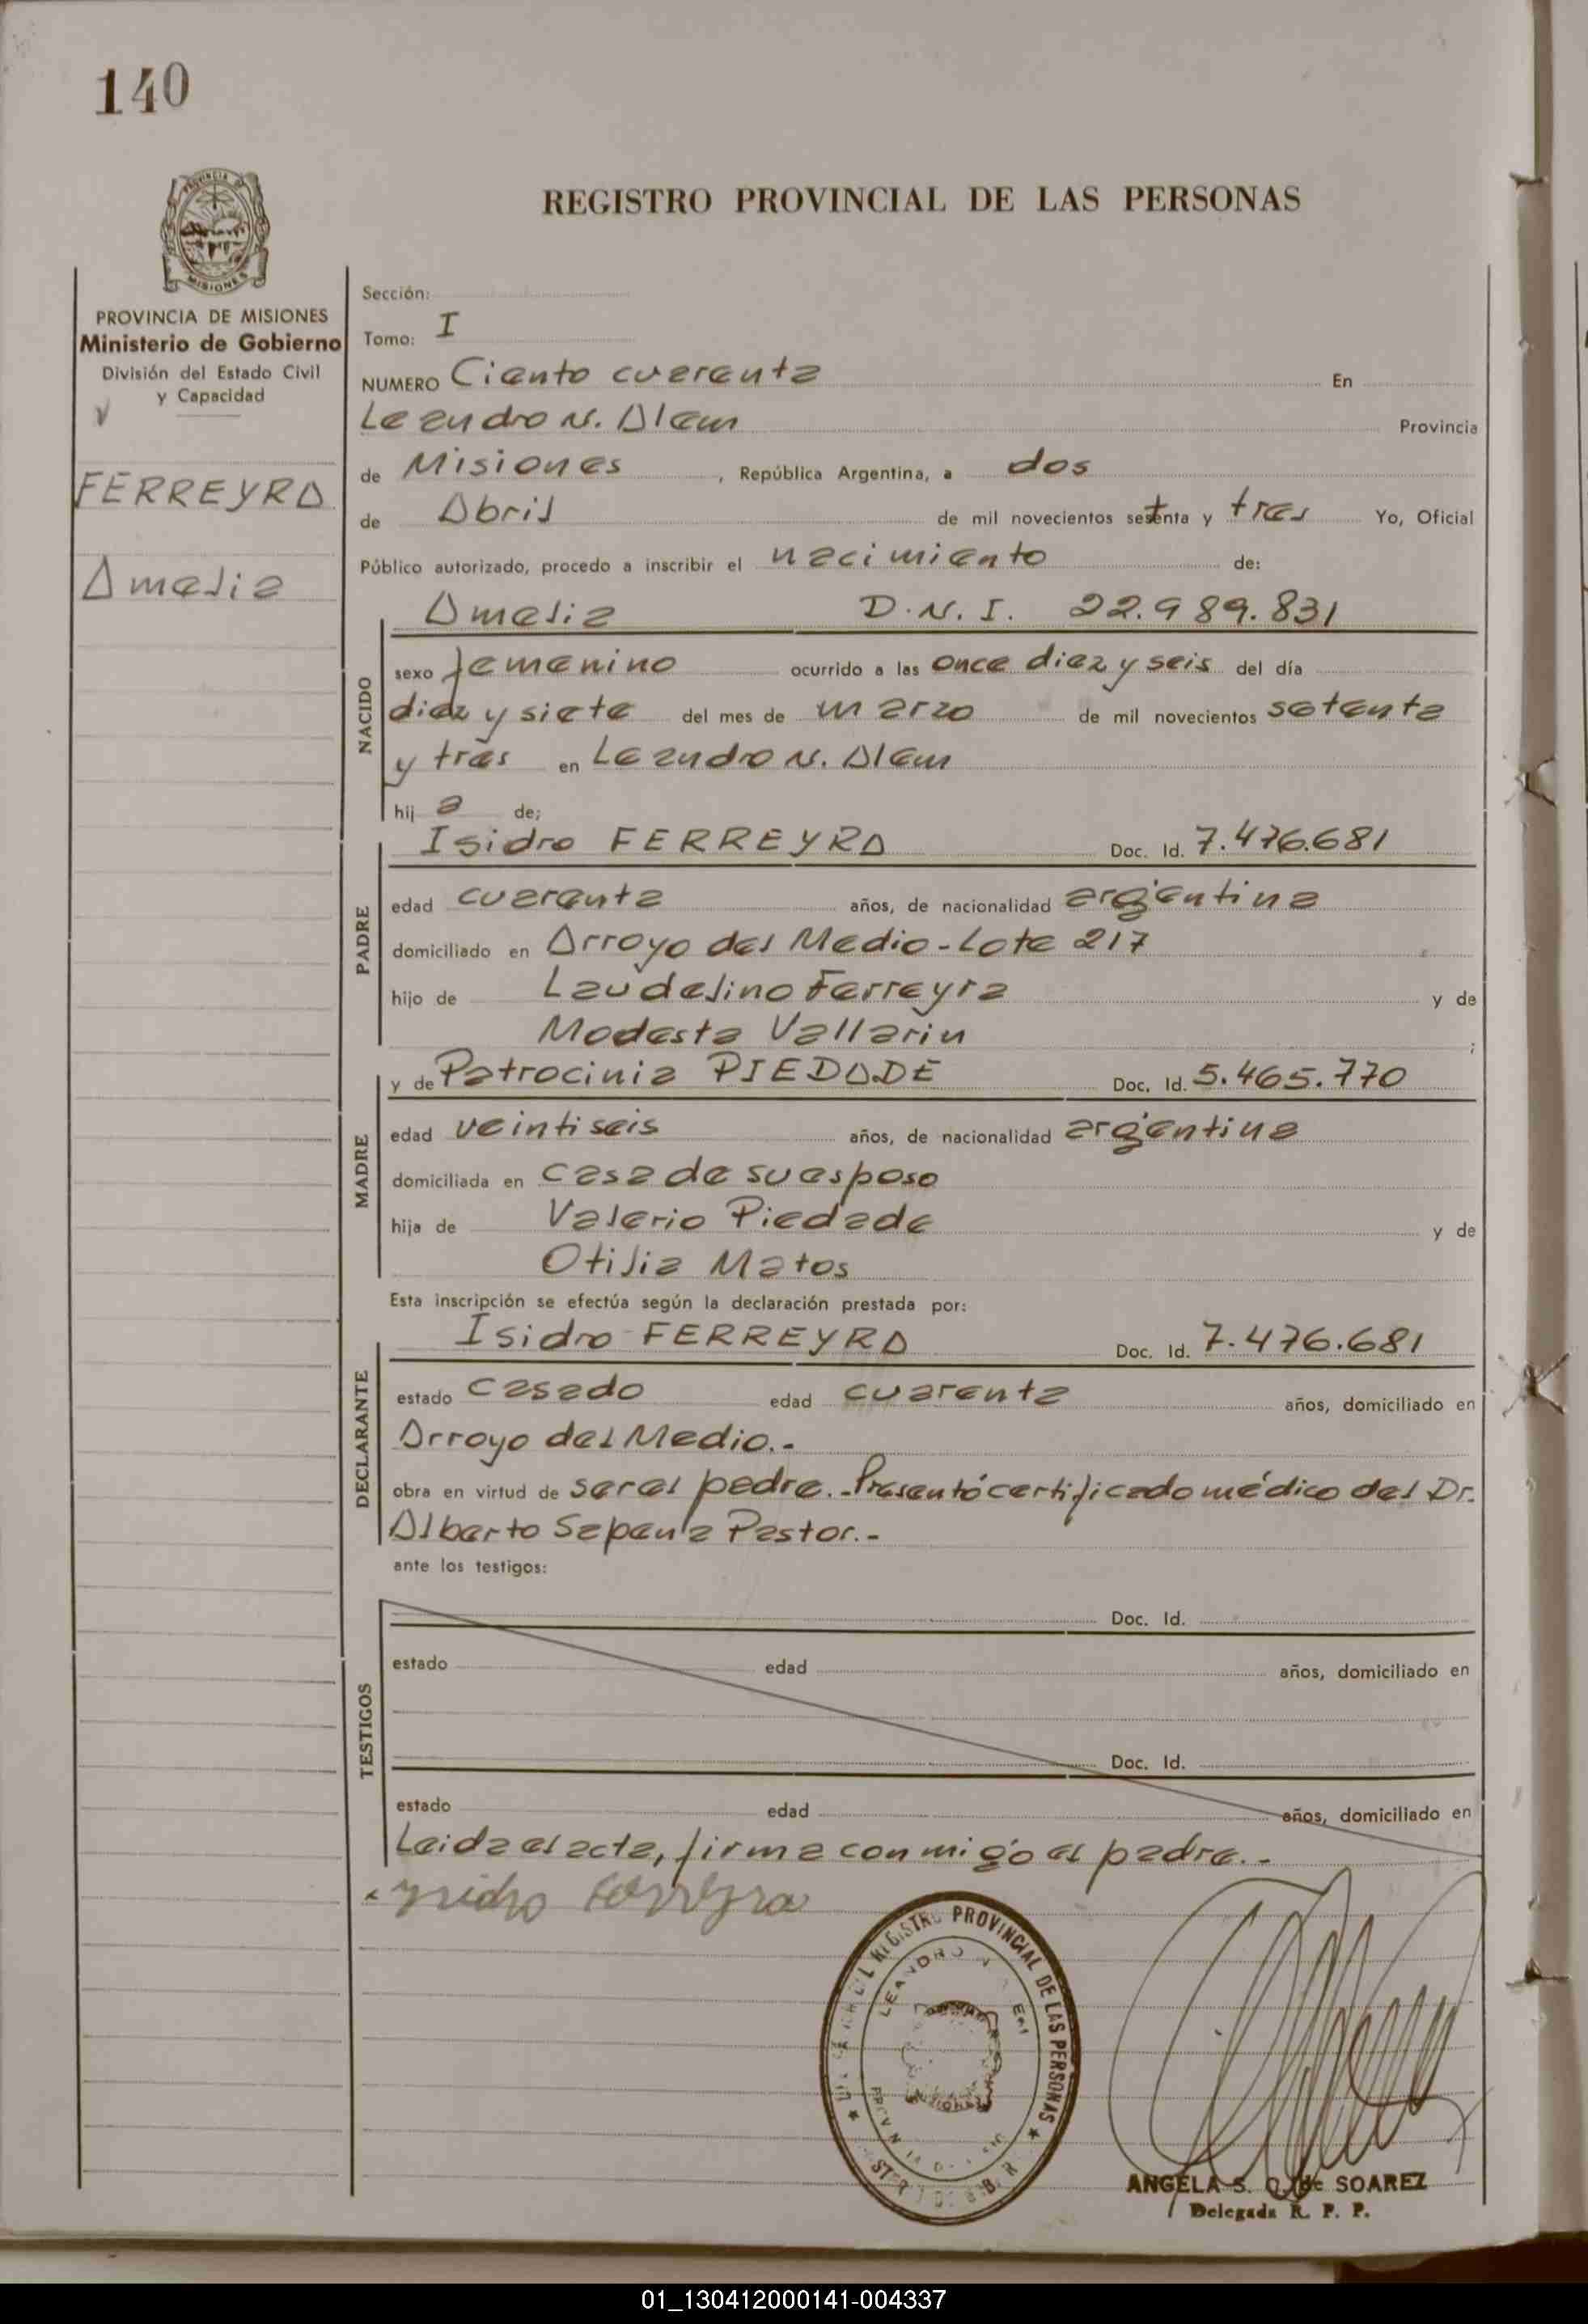 140
REGISTRO PROVINCIAL DE LAS PERSONAS
MISIONES
PROVINCIA DE MISIONES
Ministerio de Gobierno
División del Estado Civil
y Capacidad
FERREYRA
Amelia
Sección:
Tomo: I
NUMERO Ciento cuarenta En
Leandro N. Alem Provincia
de Misiones, República Argentina, a dos
de Abril de mil novecientos setenta y tres Yo, Oficial
Público autorizado, procedo a inscribir el nacimiento de:
Amelia D.N.I. 22.989.831
NACIDO
sexo femenino ocurrido a las once diez y seis del día
diez y siete del mes de marzo de mil novecientos setenta
y tres en Leandro N. Alem
hij a de;
PADRE
Isidro FERREYRA Doc. Id. 7.476.681
edad cuarenta años, de nacionalidad argentina
domiciliado en Arroyo del Medio - Lote 217
hijo de Laudelino Ferreyra y de
Modesta Vallarin ;
MADRE
y de Patrocinia PIEDADE Doc. Id. 5.465.770
edad veintiseis años, de nacionalidad argentina
domiciliada en casa de su esposo
hija de Valerio Piedade y de
Otilia Matos
Esta inscripción se efectúa según la declaración prestada por:
DECLARANTE
Isidro FERREYRA Doc. Id. 7.476.681
estado casado edad cuarenta años, domiciliado en
Arroyo del Medio.-
obra en virtud de ser el padre.- Presentó certificado médico del Dr.
Alberto Pastor.-
ante los testigos:
TESTIGOS
Doc. Id.
estado edad años, domiciliado en
Doc. Id.
estado edad años, domiciliado en
Leida el acta, firma conmigo el padre.-
Ysidro Ferreyra
REGISTRO PROVINCIAL DE LAS PERSONAS
LEANDRO
ANGELA S. de SOAREZ
Delegada R. P. P.
01_130412000141-004337